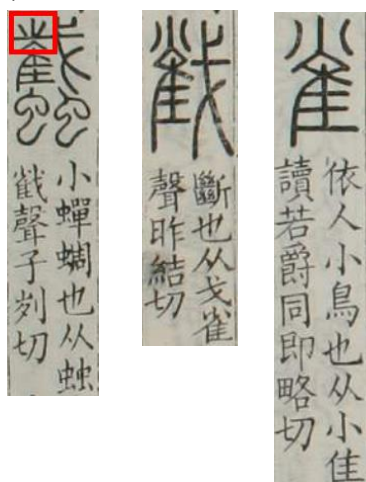 䘁
小蟬蜩也从䖵
𢧵聲子列切
𢧵
斷也从戈雀
聲昨結切
雀
依人小鳥也从小隹
讀若爵同即略切